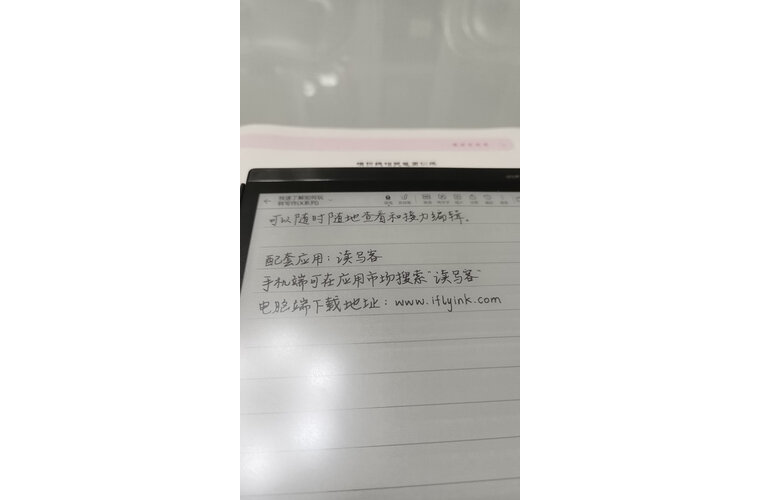 快速了解如何玩
转写作(X系列)
可以随时随地查看和接力编辑。
配套应用：读写客
手机端可在应用市场搜索“读写客”
电脑端下载地址：www.iflyink.com